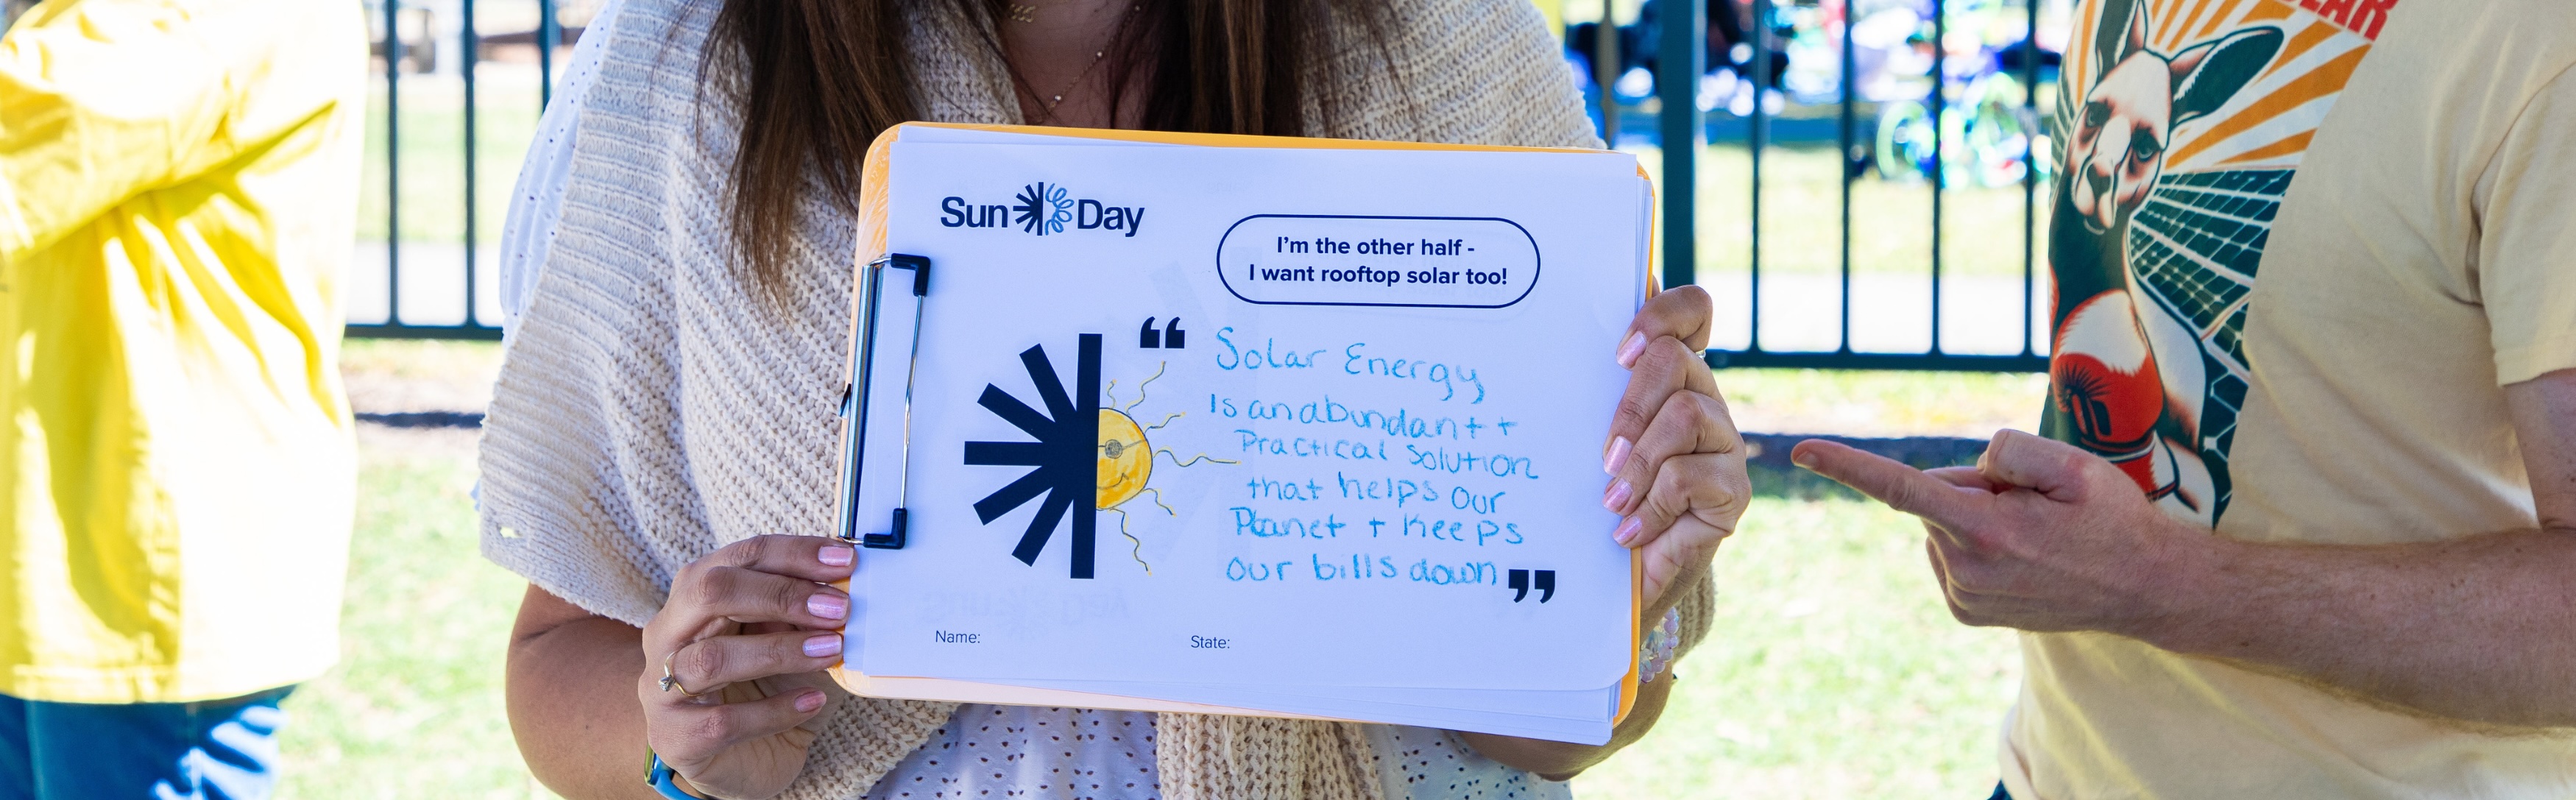 Sun Day
I'm the other half -
I want rooftop solar too!
“
Solar Energy
Is an abundant +
Practical Solution
that helps our
Planet + Keeps
our bills down
”
Name:
State: